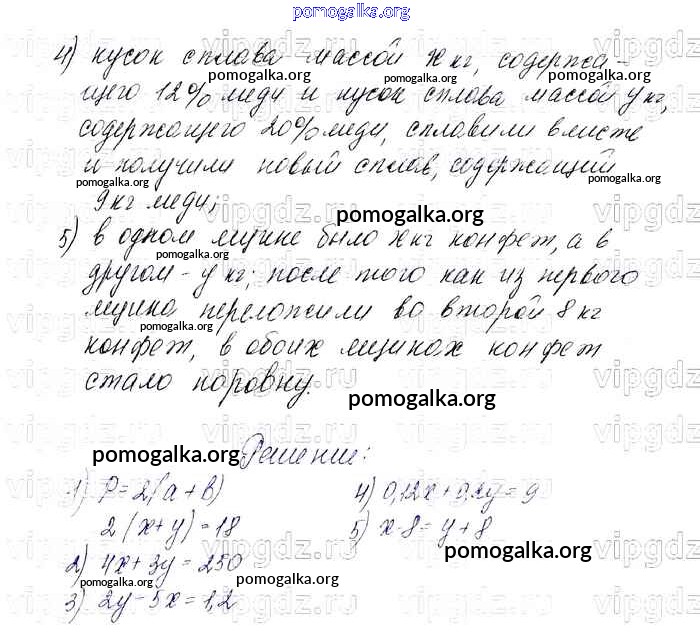 pomogalka.org
4) кусок сплава массой x кг, содержа-
щего 12% меди и кусок сплава массой y кг,
содержащего 20% меди, сплавили вместе
и получили новый сплав, содержащий
9 кг меди;
5) в одном ящике было x кг конфет, а в
другом - y кг; после того как из первого
ящика переложили во второй 8 кг
конфет, в обоих ящиках конфет
стало поровну.
Решение:
1) P = 2(a + b)
2(x+y) = 18
2) 4x + 3y = 250
3) 2y - 5x = 1,2
4) 0,12x + 0,2y = 9
5) x - 8 = y + 8
pomogalka.org
pomogalka.org
pomogalka.org
pomogalka.org
pomogalka.org
pomogalka.org
pomogalka.org
pomogalka.org
pomogalka.org
pomogalka.org
pomogalka.org
pomogalka.org
pomogalka.org